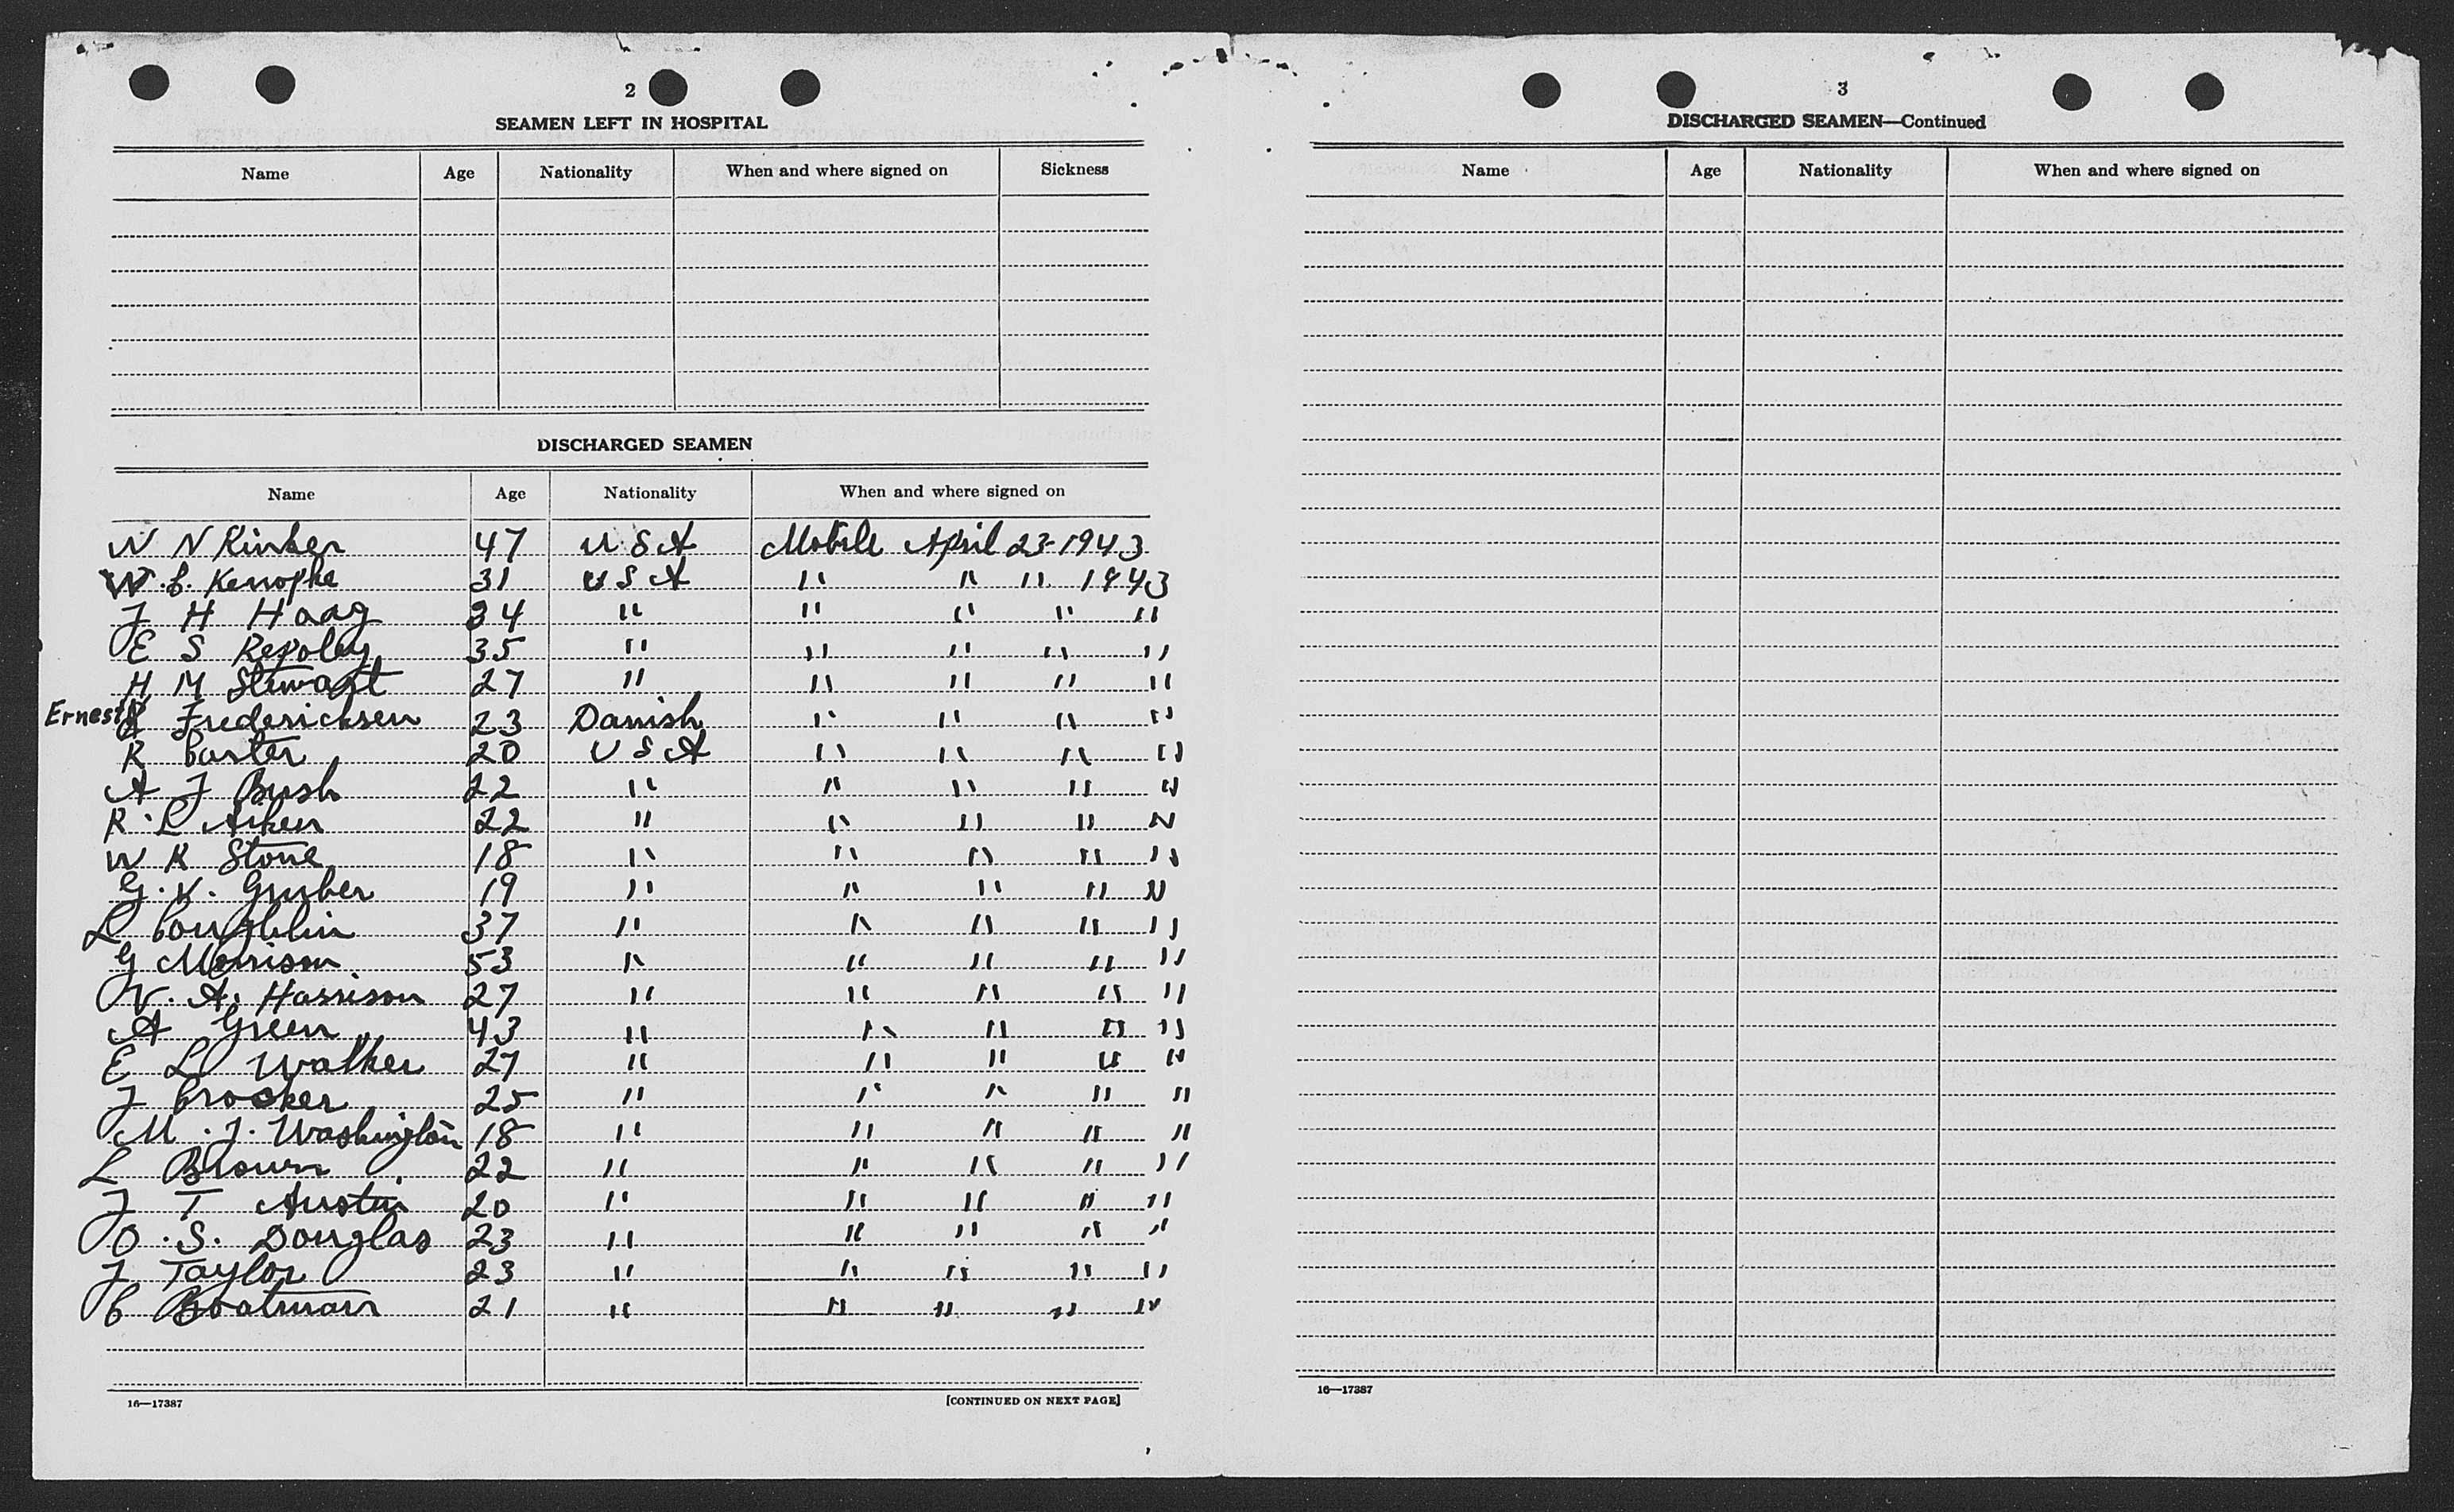 2
SEAMEN LEFT IN HOSPITAL
Name Age Nationality When and where signed on Sickness
DISCHARGED SEAMEN
Name Age Nationality When and where signed on
W N Rinker 47 U S A Mobile April 23-1943
W. C. 31 U S A " " " 1943
J H Haag 34 " " " " "
E S Repoley 35 " " " " "
H M Stewart 27 " " " " "
Ernest Fredericksen 23 Danish " " " "
R Carter 20 U S A " " " "
A J Bush 22 " " " " "
R. L Aiken 22 " " " " "
W R Stone 18 " " " " "
G. V. Gruber 19 " " " " "
L Coughlin 37 " " " " "
G Morrison 53 " " " " "
V. A. Harrison 27 " " " " "
A Green 43 " " " " "
E L Walker 27 " " " " "
J Crocker 25 " " " " "
M. J. Washington 18 " " " " "
L Brown 22 " " " " "
J T Austin 20 " " " " "
O. S. Douglas 23 " " " " "
J Taylor 23 " " " " "
C Boatman 21 " " " " "
16—17387 [CONTINUED ON NEXT PAGE]
3
DISCHARGED SEAMEN—Continued
Name Age Nationality When and where signed on
16—17387